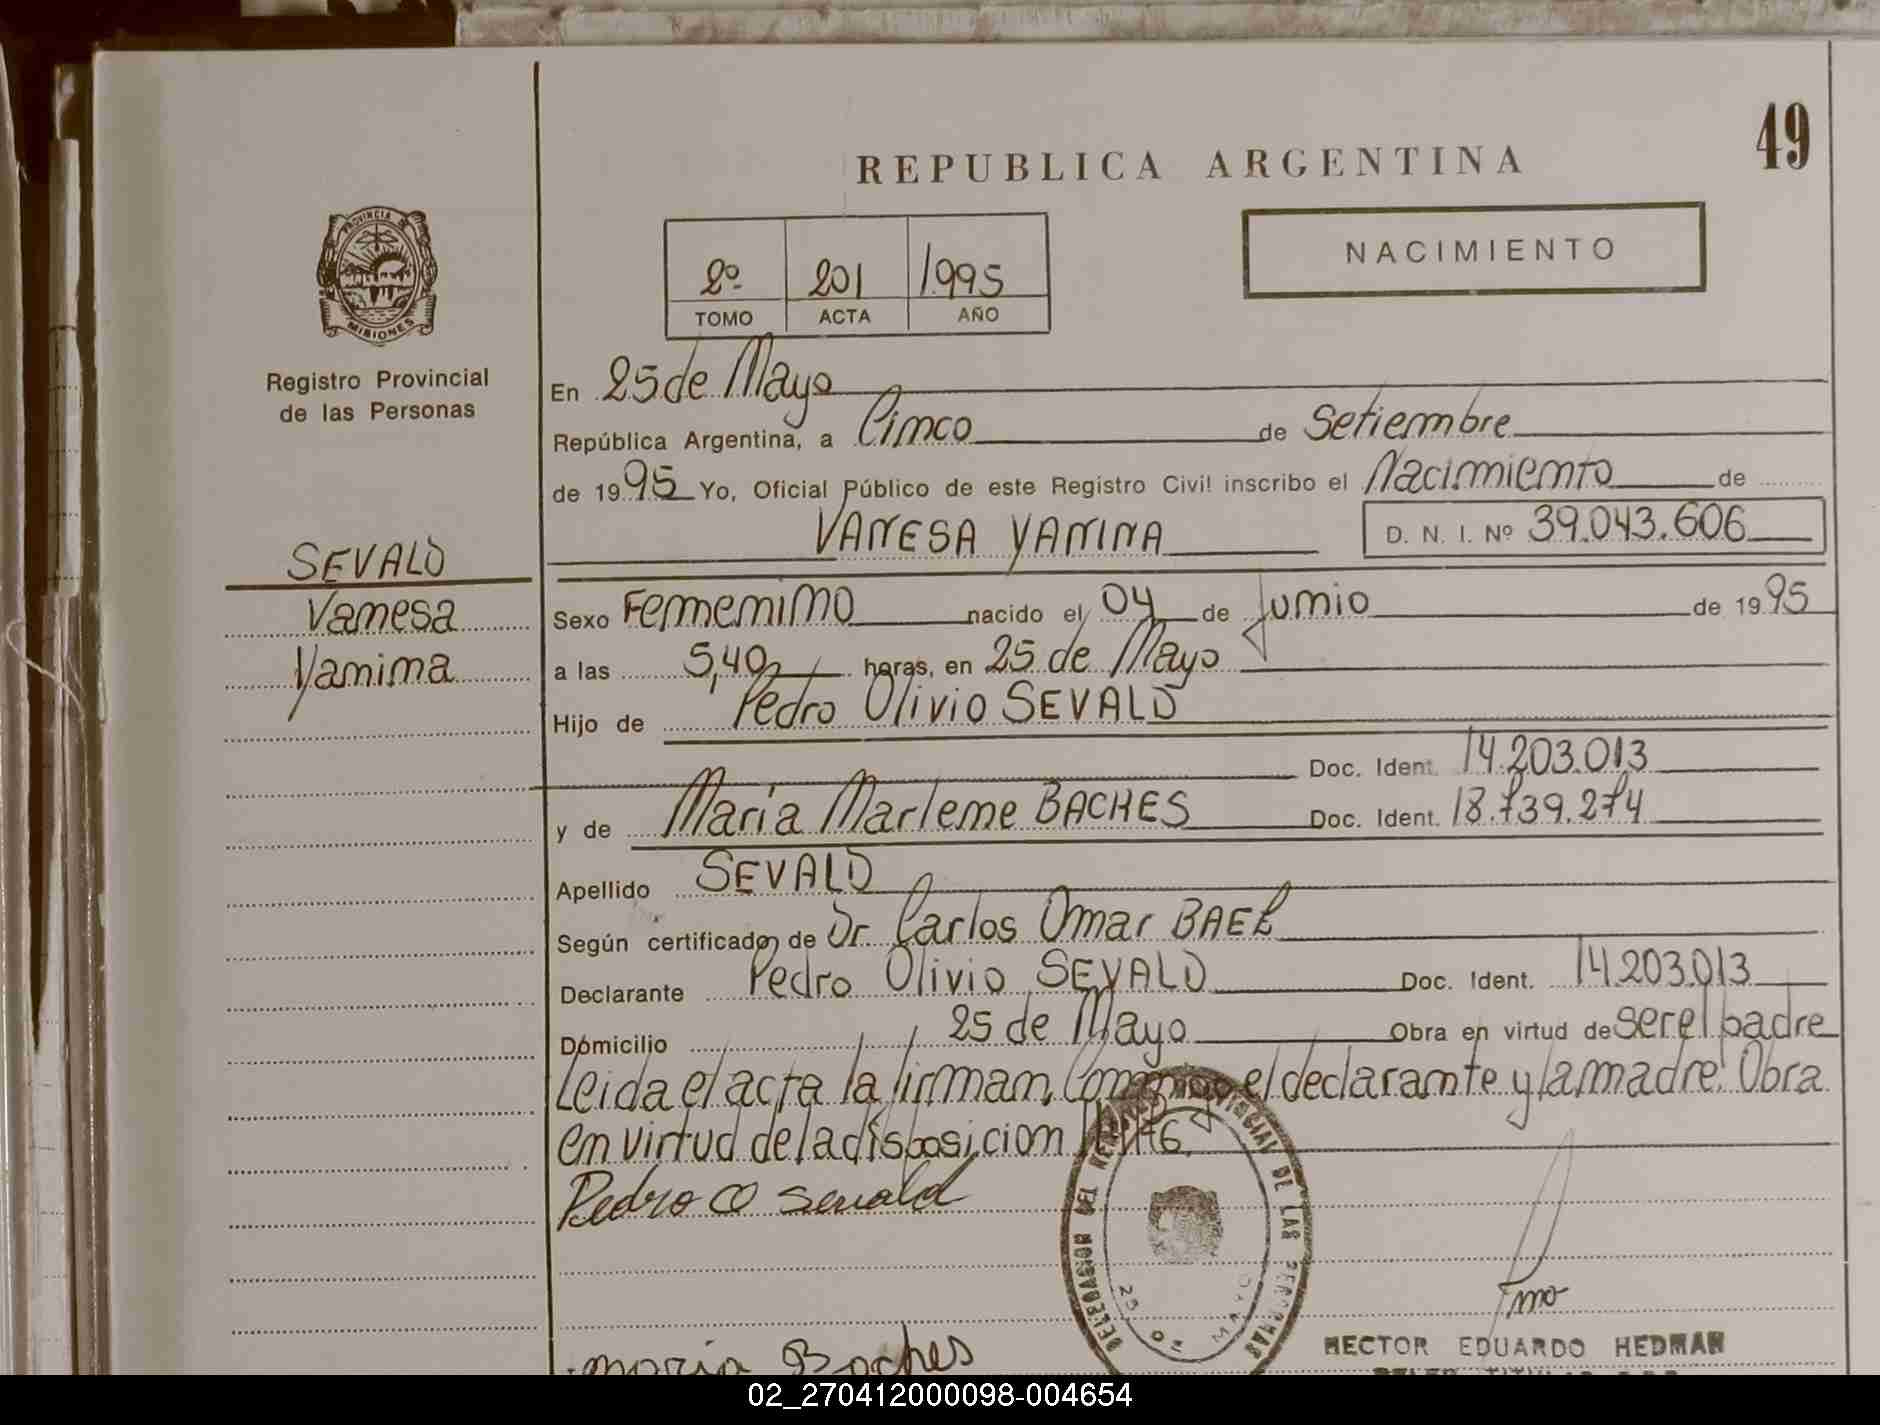 49
REPUBLICA ARGENTINA
NACIMIENTO
2º 201 1995
TOMO ACTA AÑO
PROVINCIA DE
MISIONES
Registro Provincial
de las Personas
En 25 de Mayo
República Argentina, a Cinco de Setiembre
de 1995 Yo, Oficial Público de este Registro Civil inscribo el Nacimiento de
VANESA YANINA D. N. I. Nº 39.043.606
SEVALD
Vanesa
Yanina
Sexo Femenino nacido el 04 de Junio de 1995
a las 5,40 horas, en 25 de Mayo
Hijo de Pedro Olivio SEVALD
Doc. Ident. 14.203.013
y de Maria Marlene BACHES Doc. Ident. 18.739.274
Apellido SEVALD
Según certificado de Dr. Carlos Omar BAEZ
Declarante Pedro Olivio SEVALD Doc. Ident. 14.203.013
Domicilio 25 de Mayo Obra en virtud de ser el padre
Leida el acta la firman, Conmigo el declarante y la madre. Obra
en virtud de la disposicion
Pedro O Sevald
DELEGACION DEL REGISTRO PROVINCIAL DE LAS PERSONAS
25 DE MAYO
maria Baches
HECTOR EDUARDO HEDMAN
02_270412000098-004654